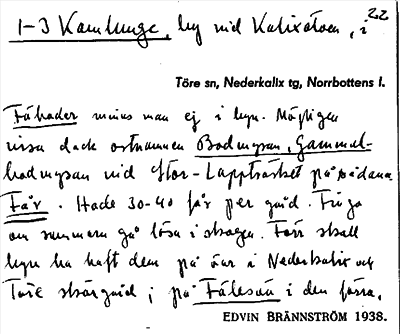 22
1-3 Kamlunge, by vid Kalixälven, i
Töre sn, Nederkalix tg, Norrbottens l.
Fäbodar minns man ej i byn. Möjligen
visa dock ortnamnen Bodmyran, Gammel-
bodmyran vid Stor-Lappträsket på sådana
Får. Hade 30-40 får per gård. Fingo
om sommarn gå lösa i skogen. Förr skall
byn ha haft dem på öar i Nederkalix och
Töre skärgård; på Fårlesön i den förra.
EDVIN BRÄNNSTRÖM 1938.